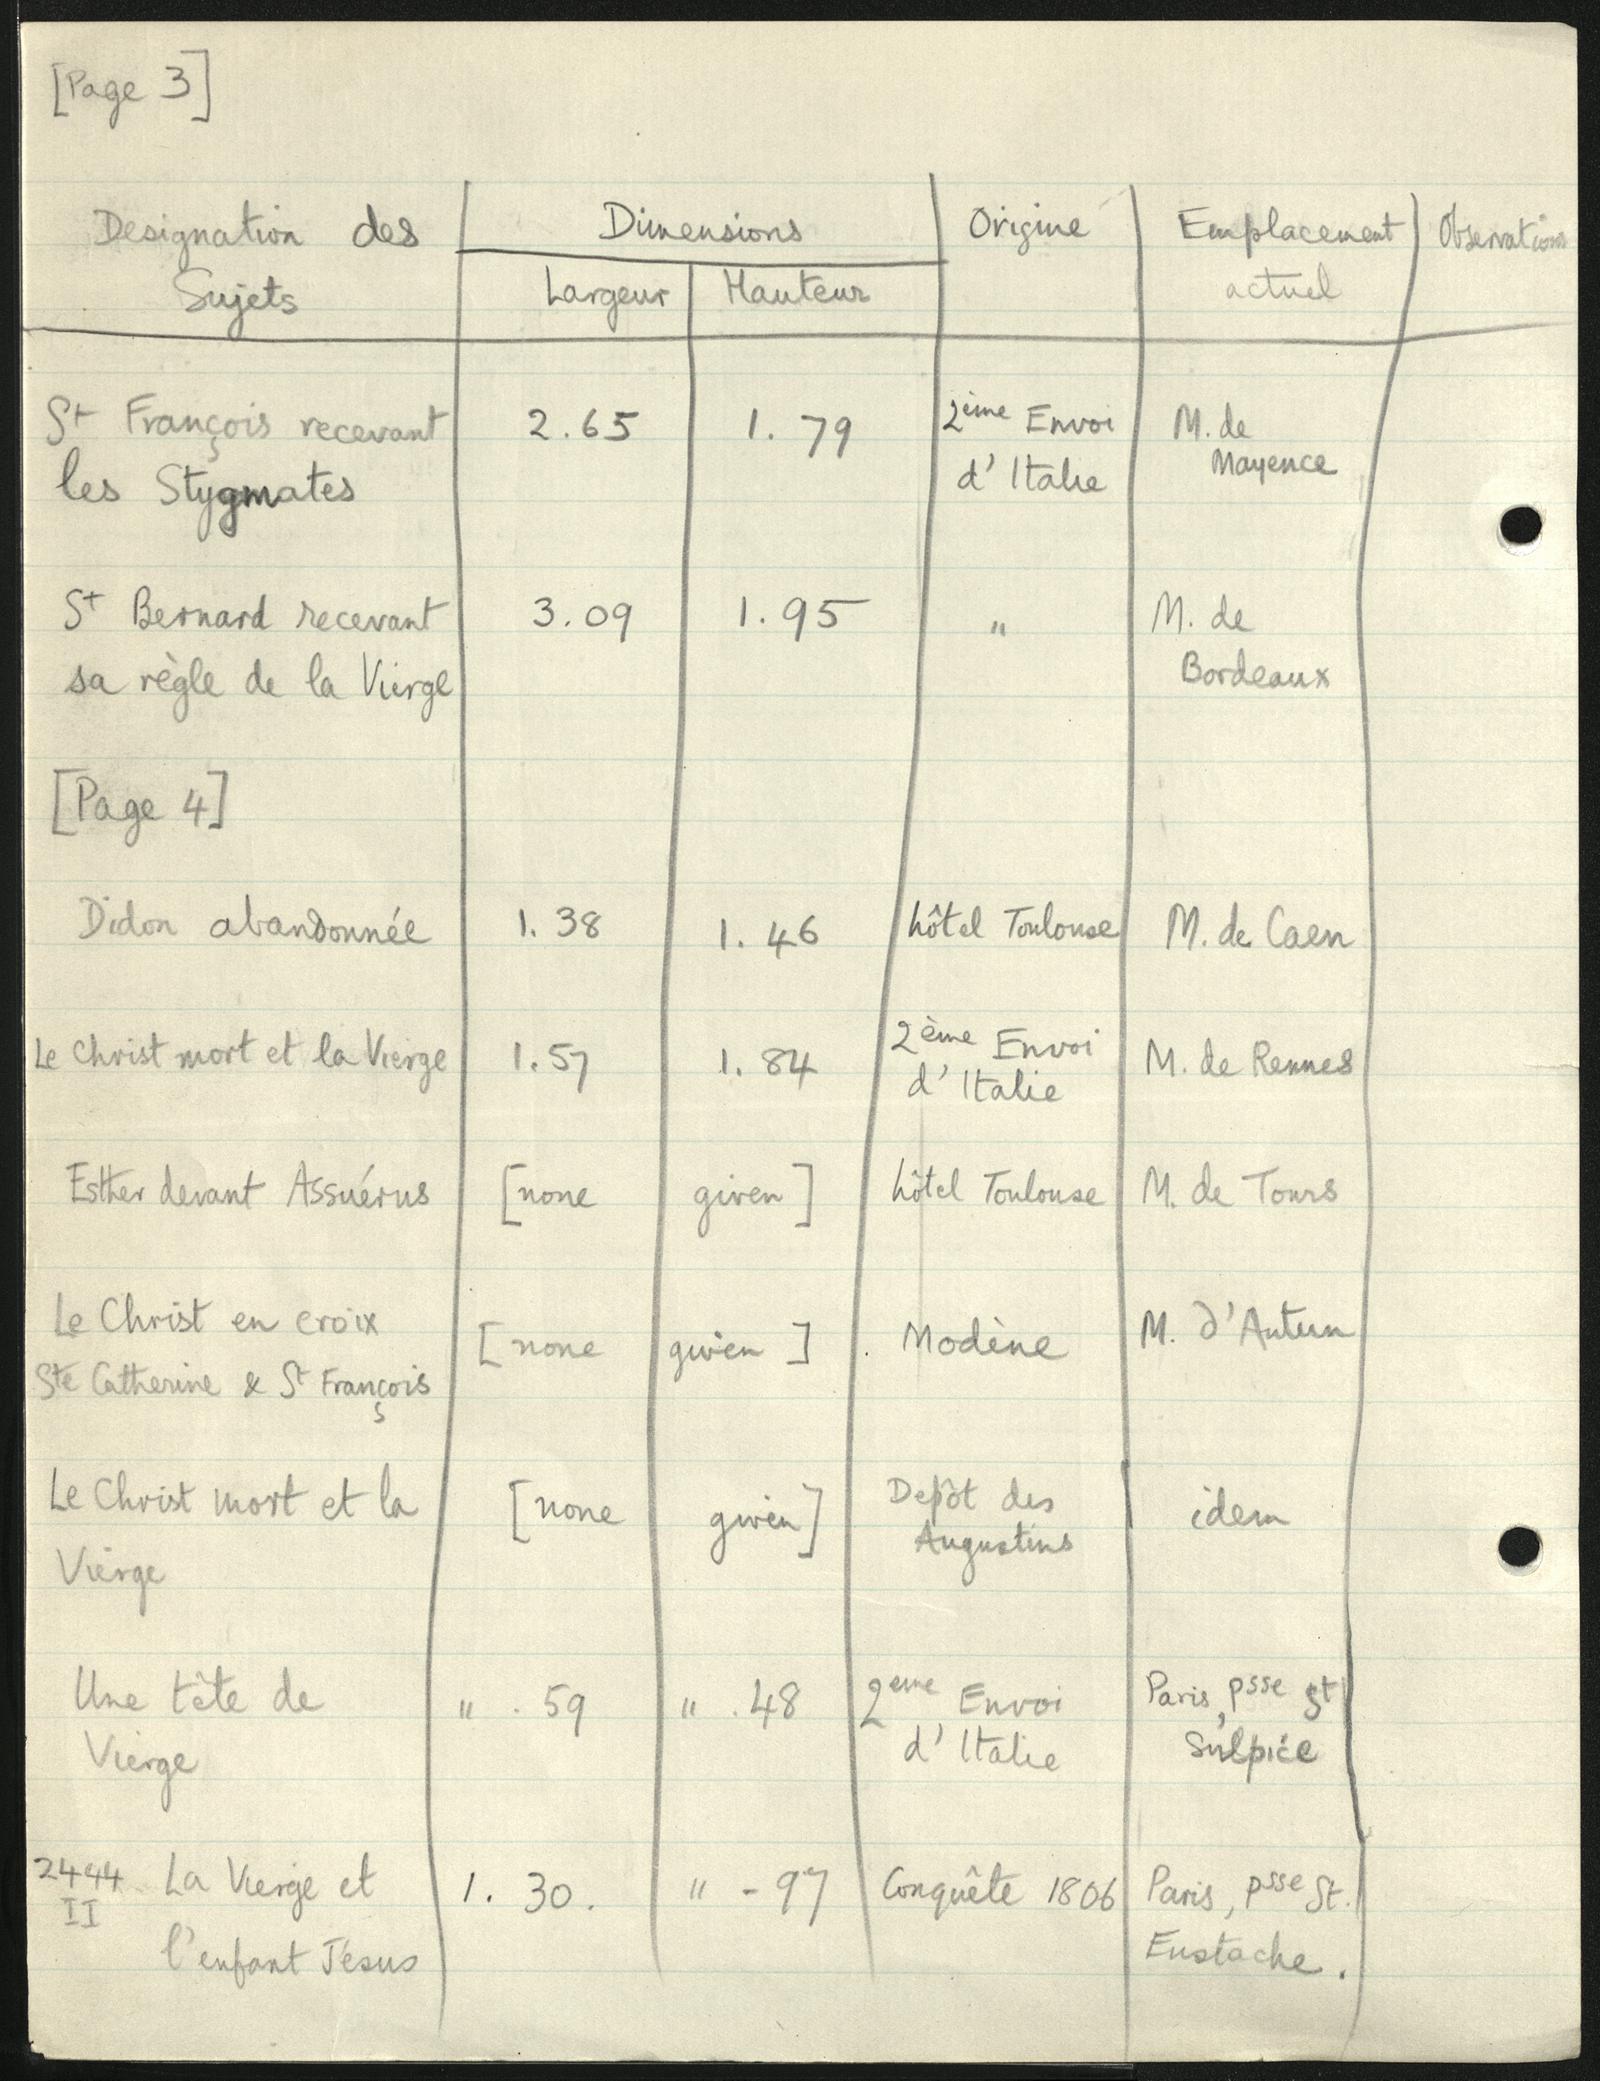 [Page 3]
Designation des Sujets | Dimensions | Origine | Emplacement actuel | Observations
Largeur | Hauteur
St François recevant 2.65 1.79 2ème Envoi M. de
les Stygmates d'Italie Mayence
St Bernard recevant 3.09 1.95 " M. de
sa règle de la Vierge Bordeaux
[Page 4]
Didon abandonnée 1.38 1.46 hôtel Toulouse M. de Caen
Le Christ mort et la Vierge 1.57 1.84 2ème Envoi M. de Rennes
d'Italie
Esther devant Assuérus [none given] hôtel Toulouse M. de Tours
Le Christ en croix [none given] Modène M. d'Autun
Ste Catherine & St François
Le Christ mort et la [none given] Depôt des idem
Vierge Augustins
Une tête de " . 59 " . 48 2eme Envoi Paris, psse St
Vierge d'Italie Sulpice
2444 La Vierge et 1. 30. " - 97 Conquête 1806 Paris, psse St.
II l'enfant Jésus Eustache.